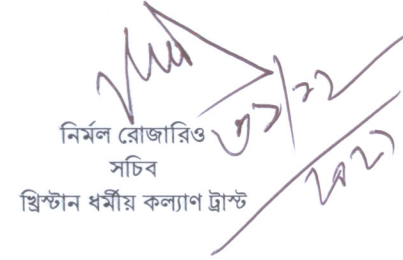 নির্মল রোজারিও
সচিব
খ্রিস্টান ধর্মীয় কল্যাণ ট্রাস্ট